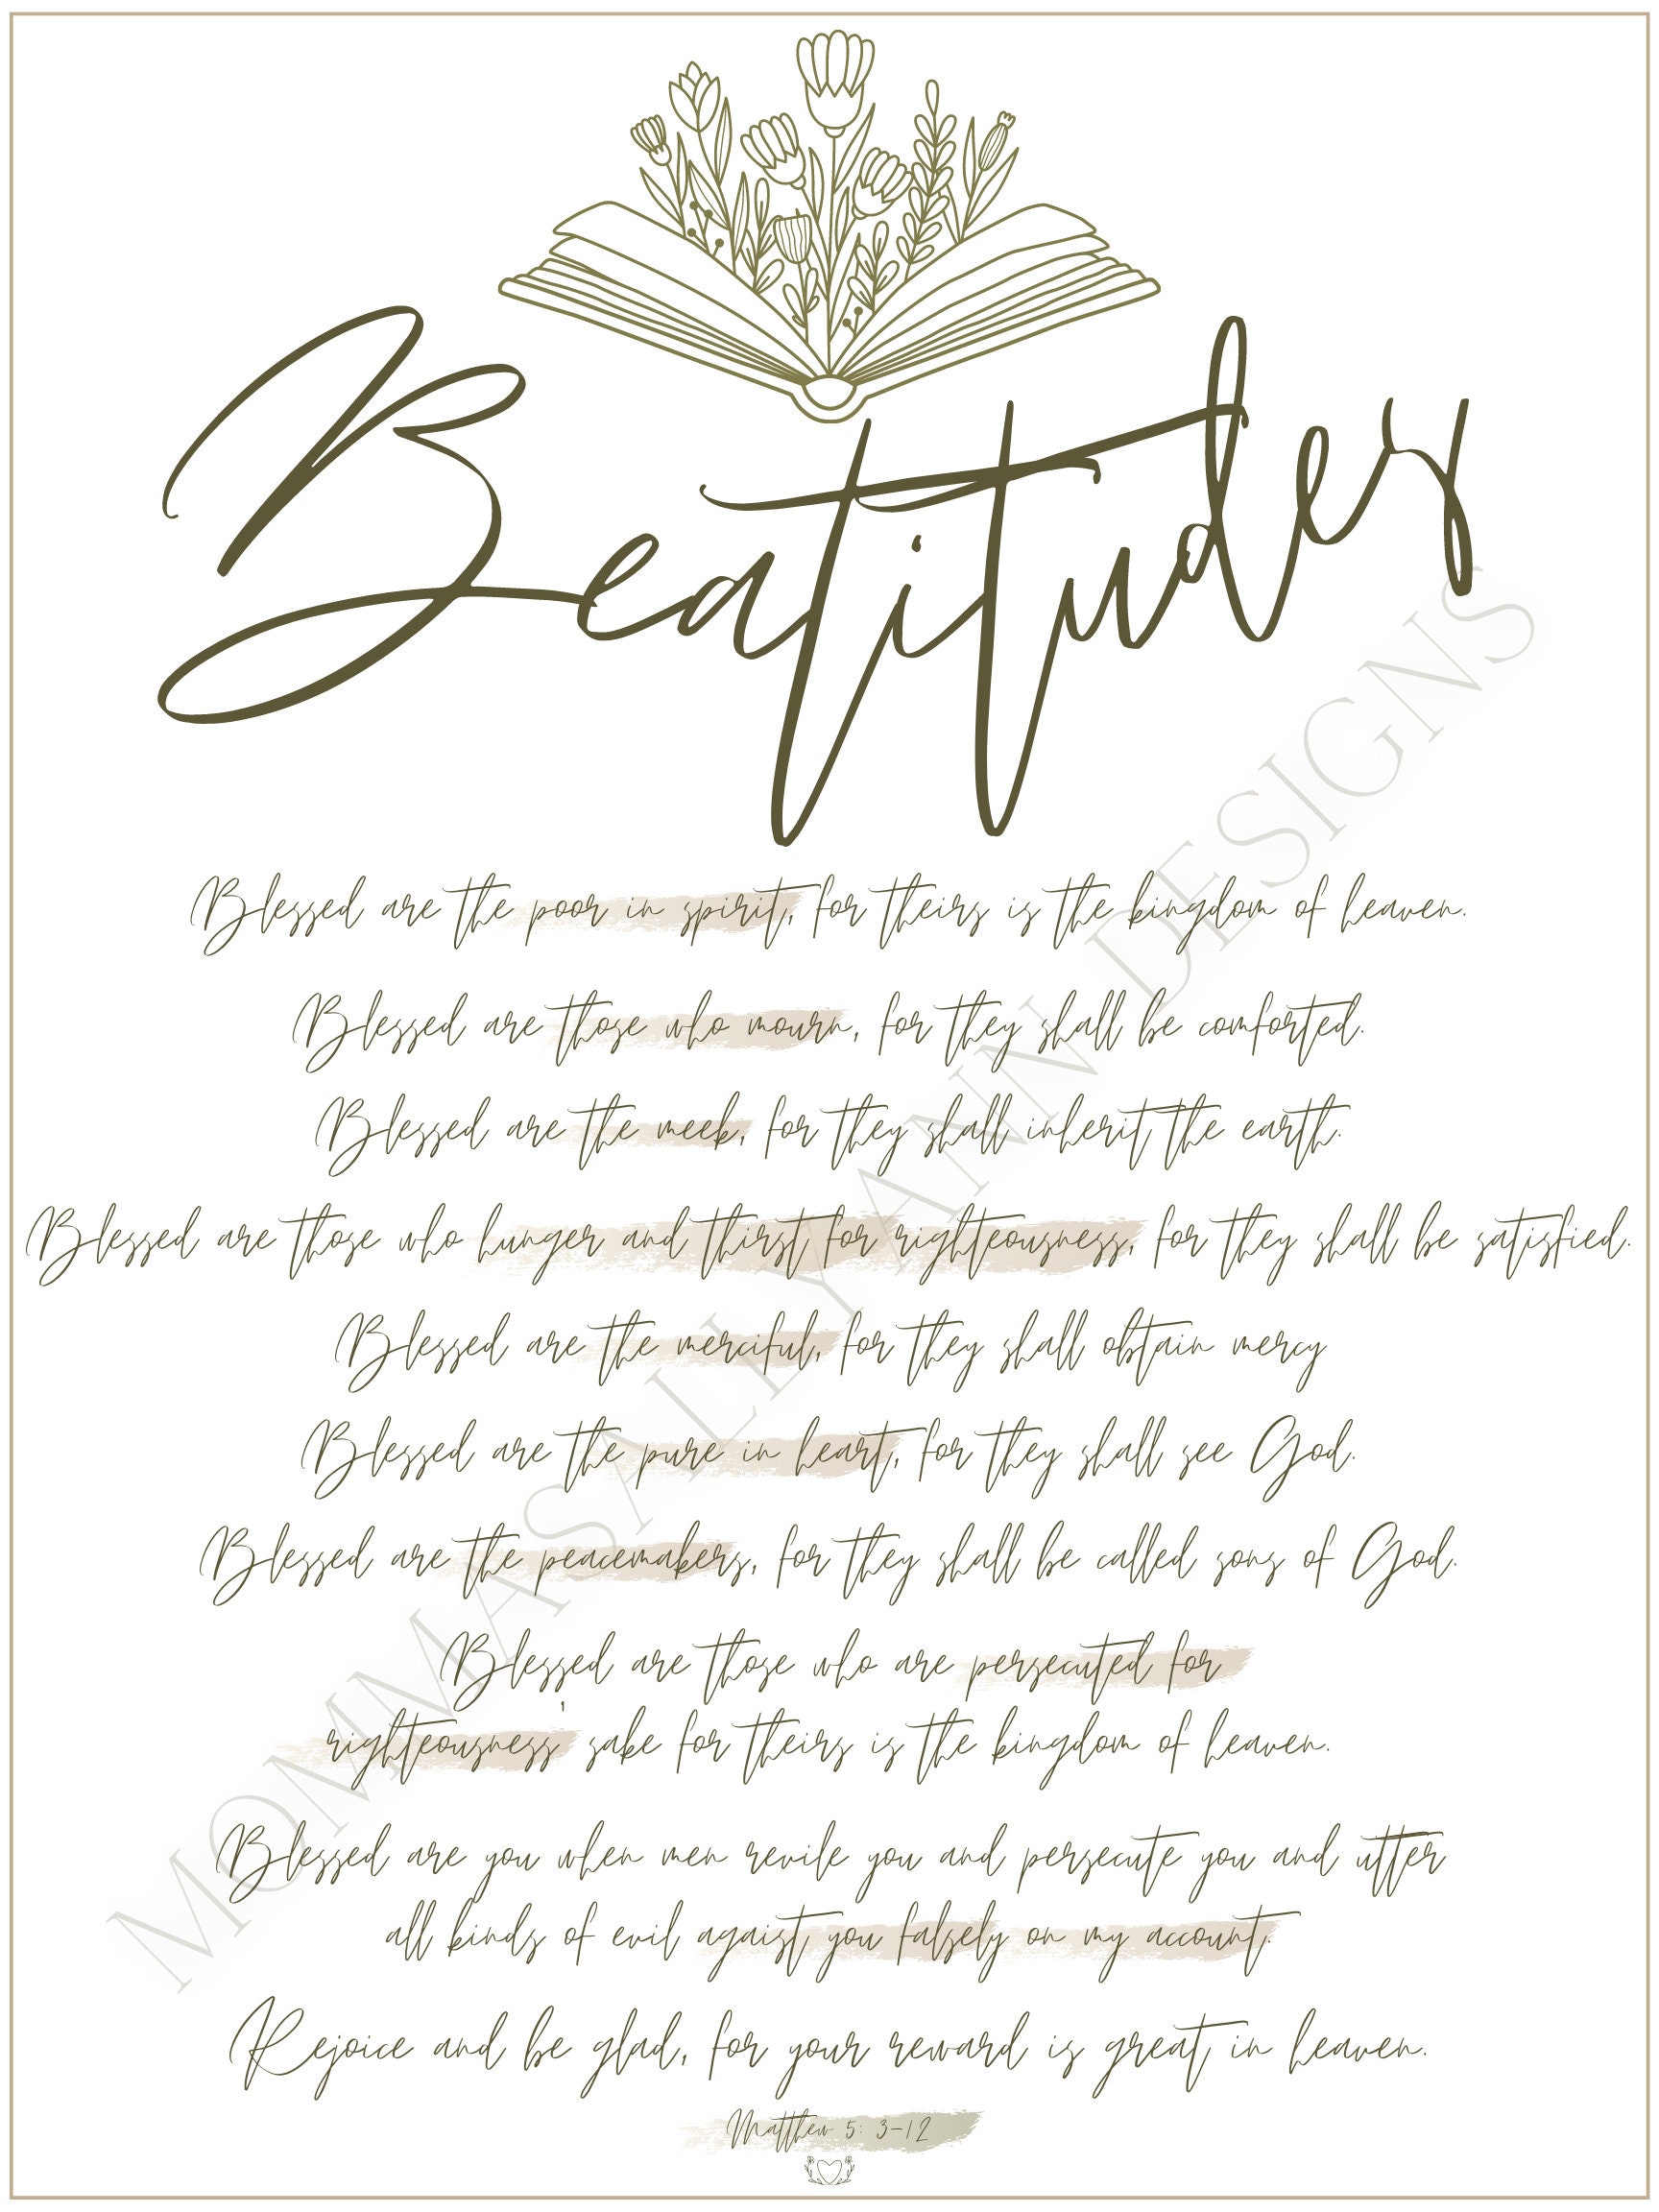 Beatitudes
Blessed are the poor in spirit, for theirs is the kingdom of heaven.
Blessed are those who mourn, for they shall be comforted.
Blessed are the meek, for they shall inherit the earth.
Blessed are those who hunger and thirst for righteousness, for they shall be satisfied.
Blessed are the merciful, for they shall obtain mercy
Blessed are the pure in heart, for they shall see God.
Blessed are the peacemakers, for they shall be called sons of God.
Blessed are those who are persecuted for
righteousness' sake for theirs is the kingdom of heaven.
Blessed are you when men revile you and persecute you and utter
all kinds of evil agaist you falsely on my account.
Rejoice and be glad, for your reward is great in heaven.
Matthew 5: 3-12
MOMMASALLYANN DESIGNS